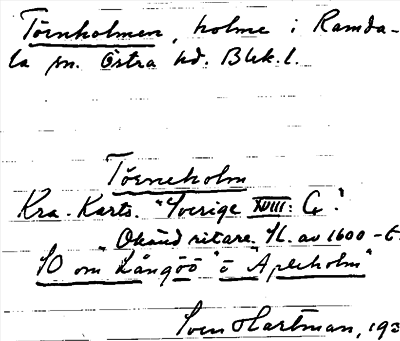 Törnholmen, holme i Ramda-
la sn. Östra hd. Blek. l.
Törneholm
Kra. Karts. "Sverige XVIII: G".
"Okänd ritare. Sl. av 1600-t.
SO om "Långöö" o "Apleholm"
Sven Hartman, 193